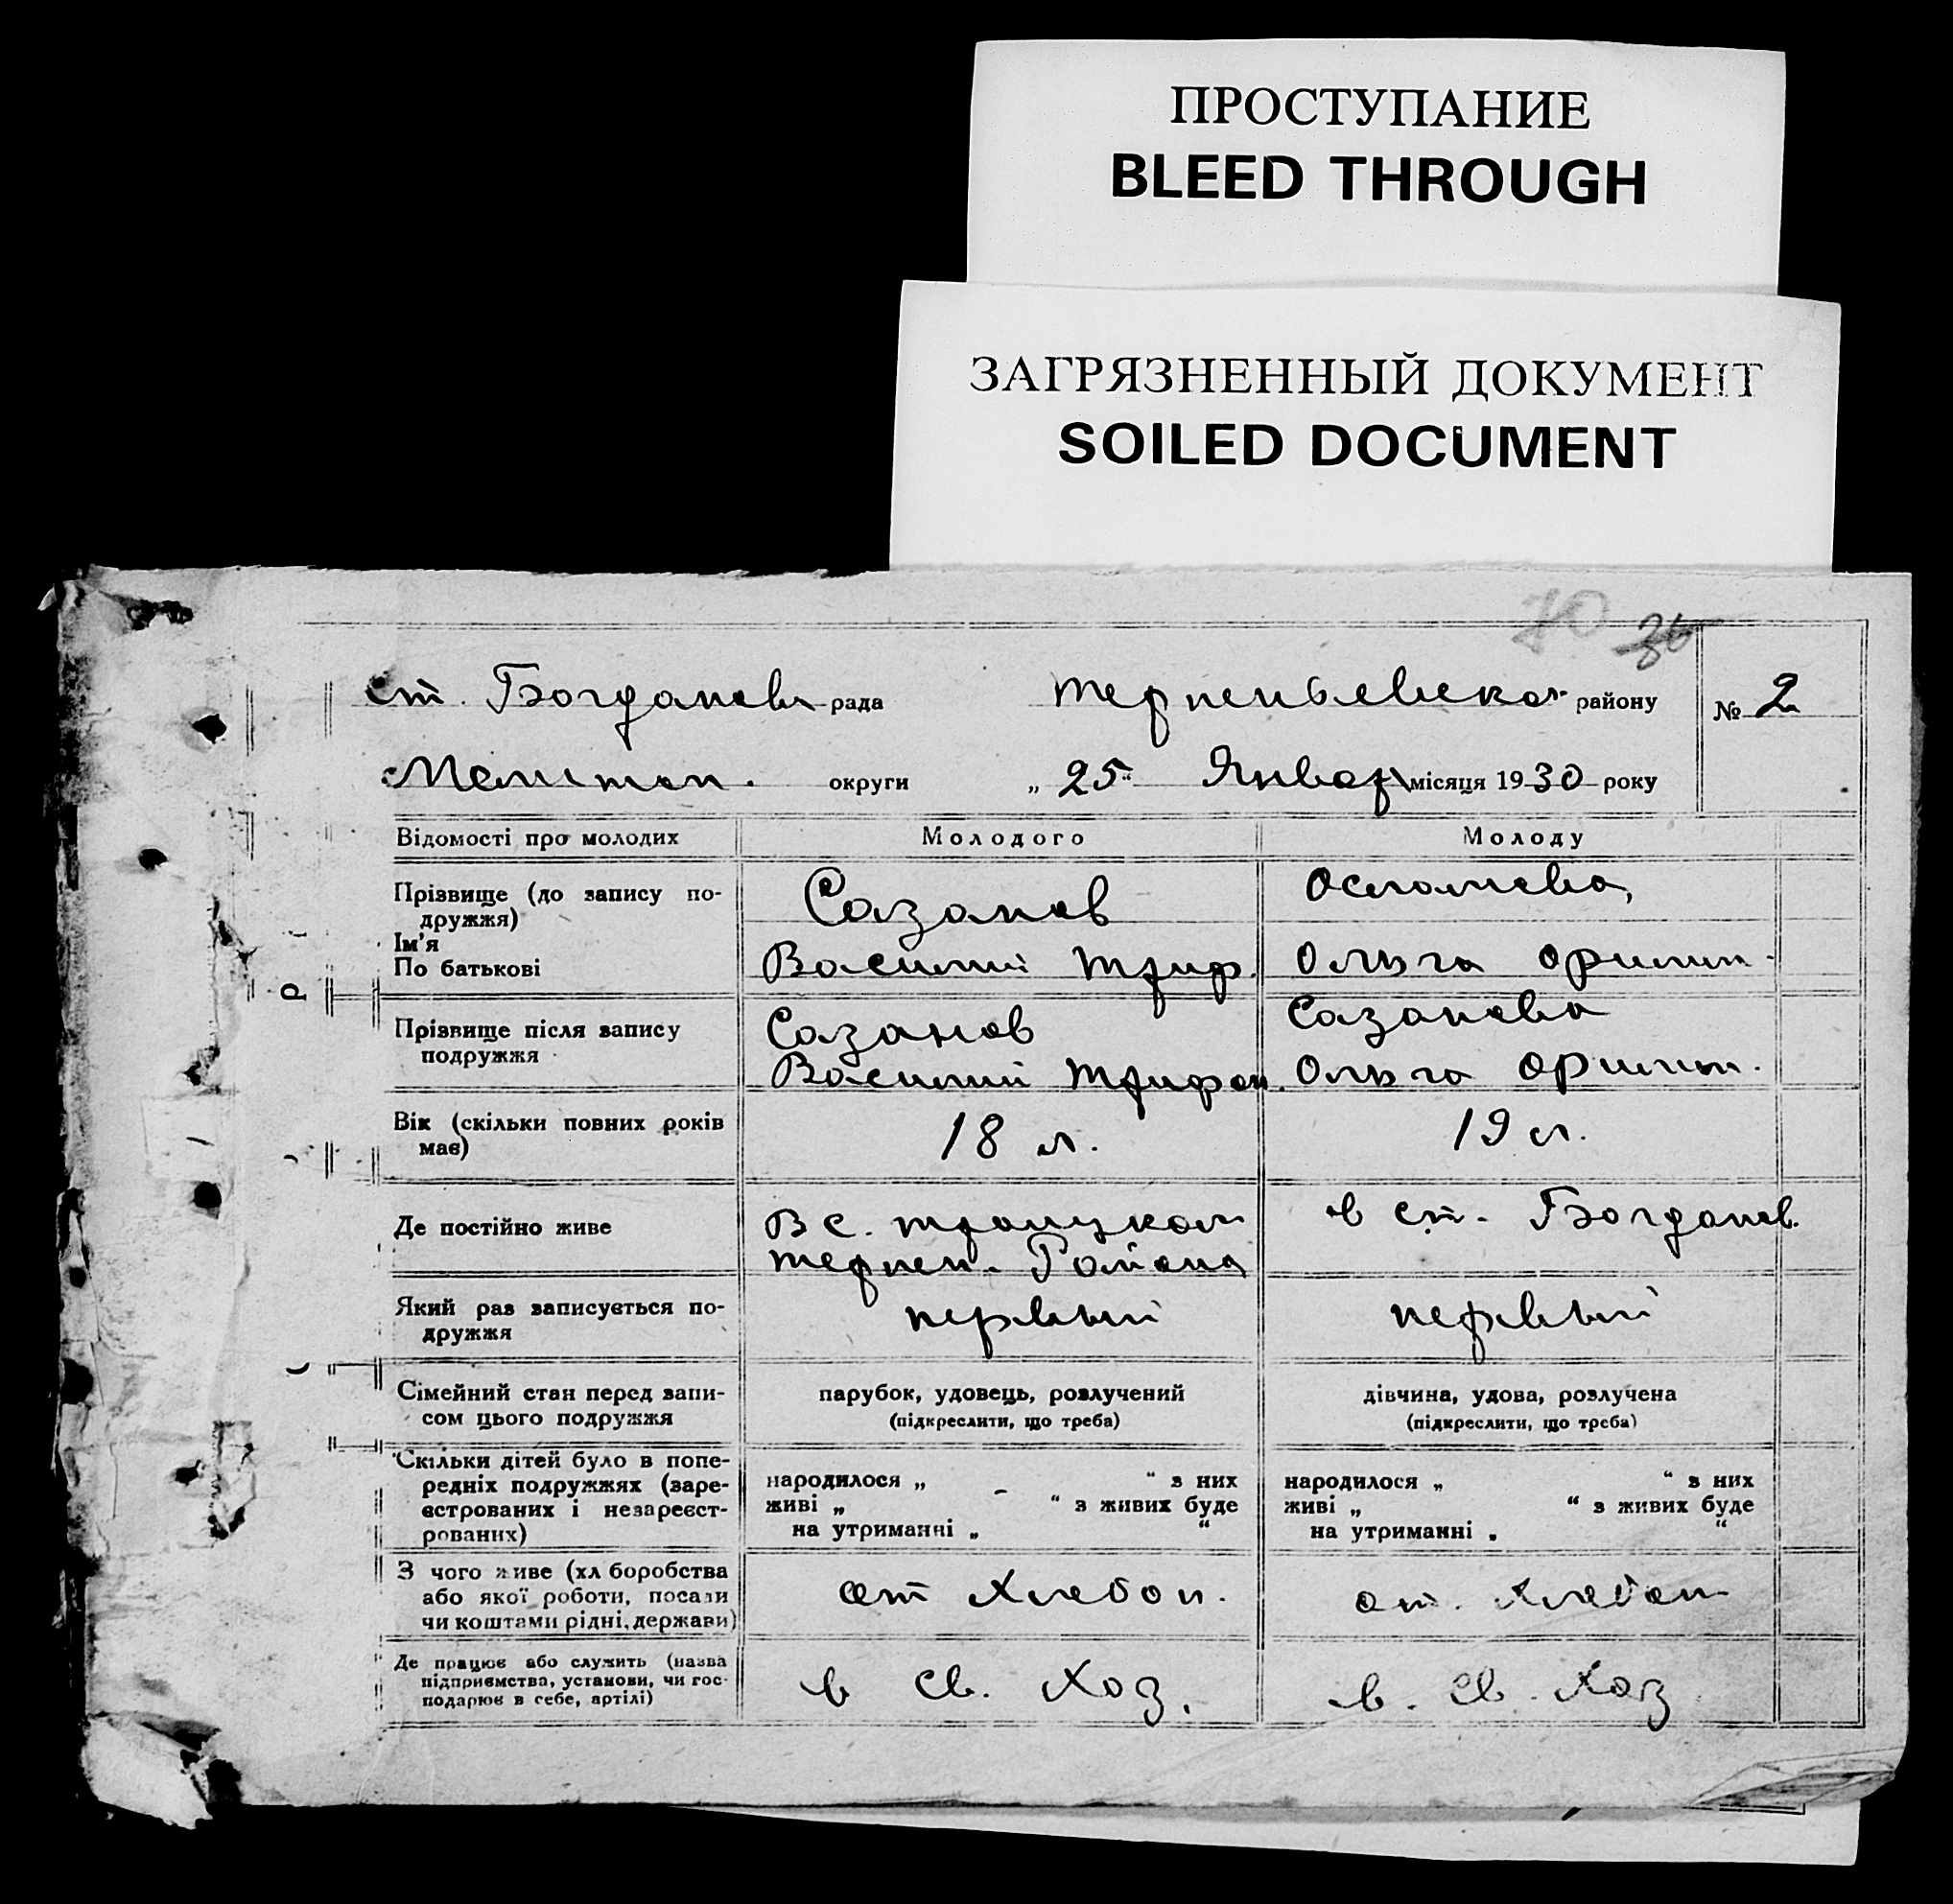 ПРОСТУПАНИЕ
BLEED THROUGH
ЗАГРЯЗНЕННЫЙ ДОКУМЕНТ
SOILED DOCUMENT
70 36
ст. Богданов рада Терпеньевско районy № 2
Мелитоп. округи „ 25 “ Января місяця 1930 року
Відомості про молодих Молодого Молоду
Прізвище (до запису по-
дружжя) Сазанов
Ім'я
По батькові Василий Триф. Ольга
Прізвище після запису подружжя Сазанов Сазанова
Василий Трифон. Ольга
Вік (скільки повних років
має) 18 л. 19 л.
Де постійно живе В с. Троицком в ст. Богданов.
Терпен. Района
Який раз записується по-
дружжя первый первый
Сімейний стан перед запи-
сом цього подружжя
парубок, удовець, розлучений дівчина, удова, розлучена
(підкреслити, що треба) (підкреслити, що треба)
Скільки дітей було в попе-
редніх подружжях (заре-
єстрованих і незареєст-
рованих)
народилося „ - “ з них народилося „ “ з них
живі „ “ з живих буде живі „ “ з живих буде
на утриманні „ “ на утриманні „ “
З чого живе (хл боробства
або якої роботи, посади
чи коштами рідні, держави)
от Хлебоп. от. Хлебоп
Де працює або служить (назва
підприємства, установи, чи гос-
подарює в себе, артілі)
в св. Хоз. в. св. Хоз